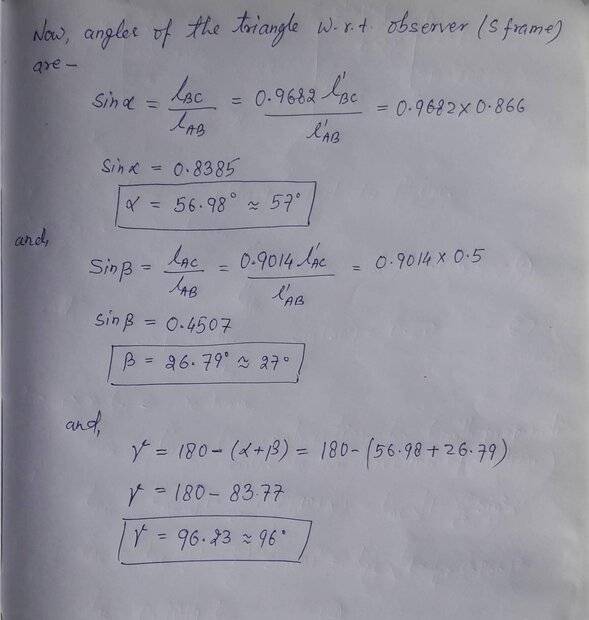 Now, angles of the triangle w.r.t. observer (S frame)
are –
Sinα = l_BC / l_AB = 0.9682 l'_BC / l'_AB = 0.9682 × 0.866
Sinα = 0.8385
α = 56.98° ≈ 57°
and,
Sinβ = l_AC / l_AB = 0.9014 l'_AC / l'_AB = 0.9014 × 0.5
Sinβ = 0.4507
β = 26.79° ≈ 27°
and,
γ = 180 – (α+β) = 180 – (56.98 + 26.79)
γ = 180 – 83.77
γ = 96.23 ≈ 96°